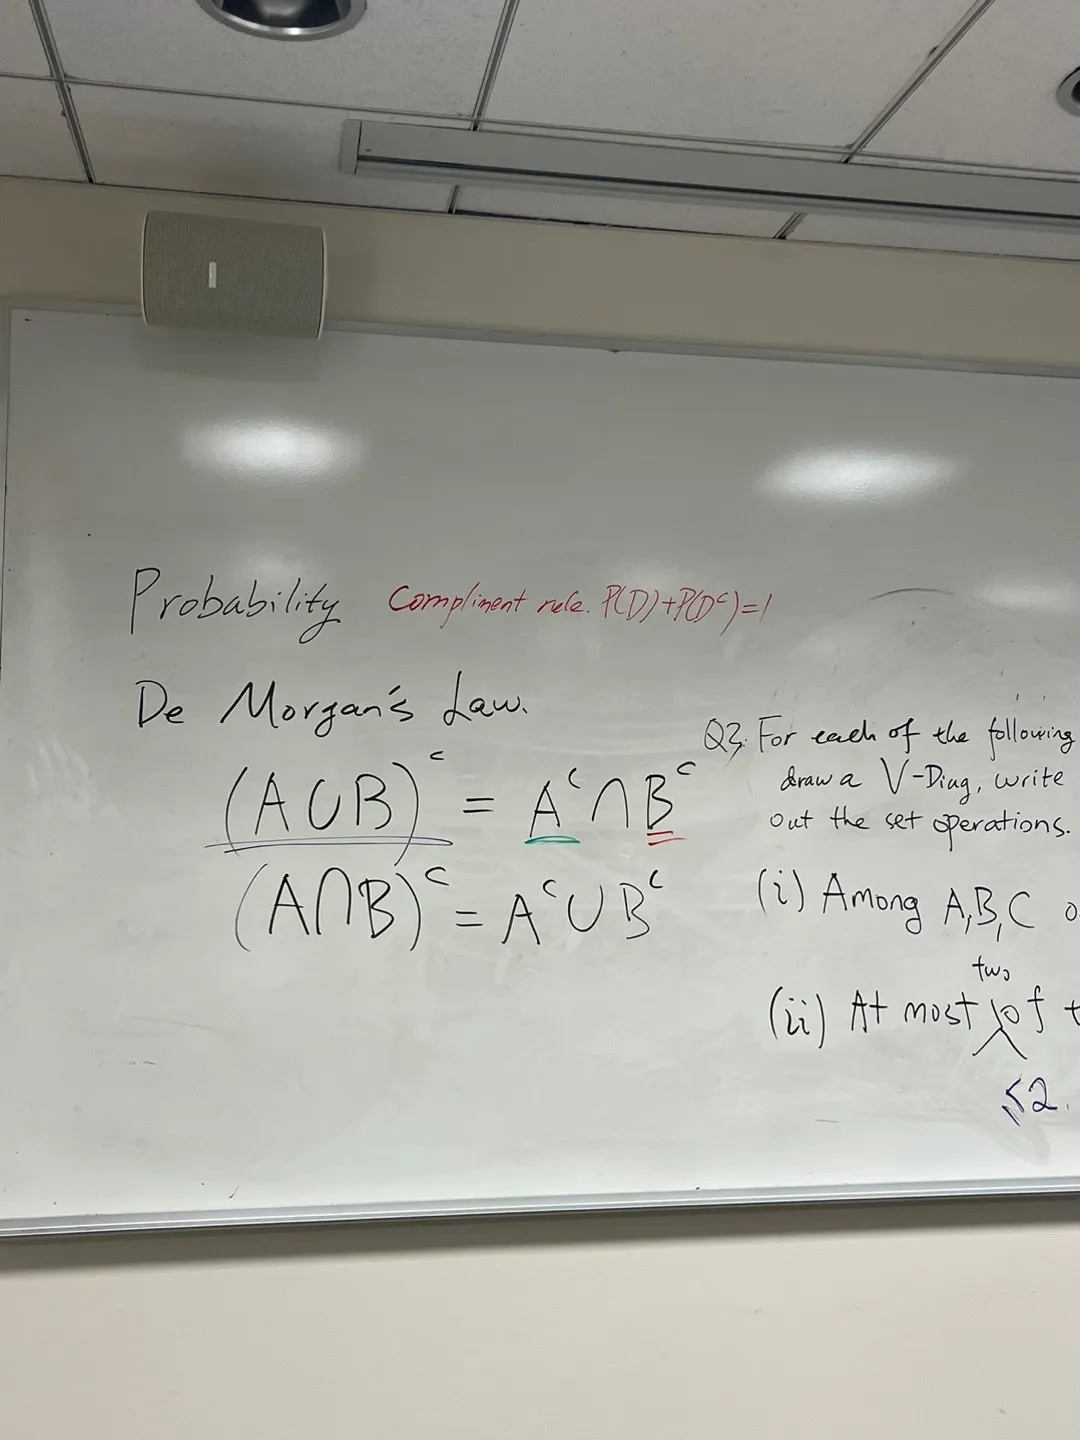 Probability Compliment rule. P(D)+P(Dᶜ)=1
De Morgan's Law.
(A∪B)ᶜ = Aᶜ∩Bᶜ
(A∩B)ᶜ = Aᶜ∪Bᶜ
Q3. For each of the following
draw a V-Diag, write
out the set operations.
(i) Among A,B,C
two
(ii) At most of
≤2.